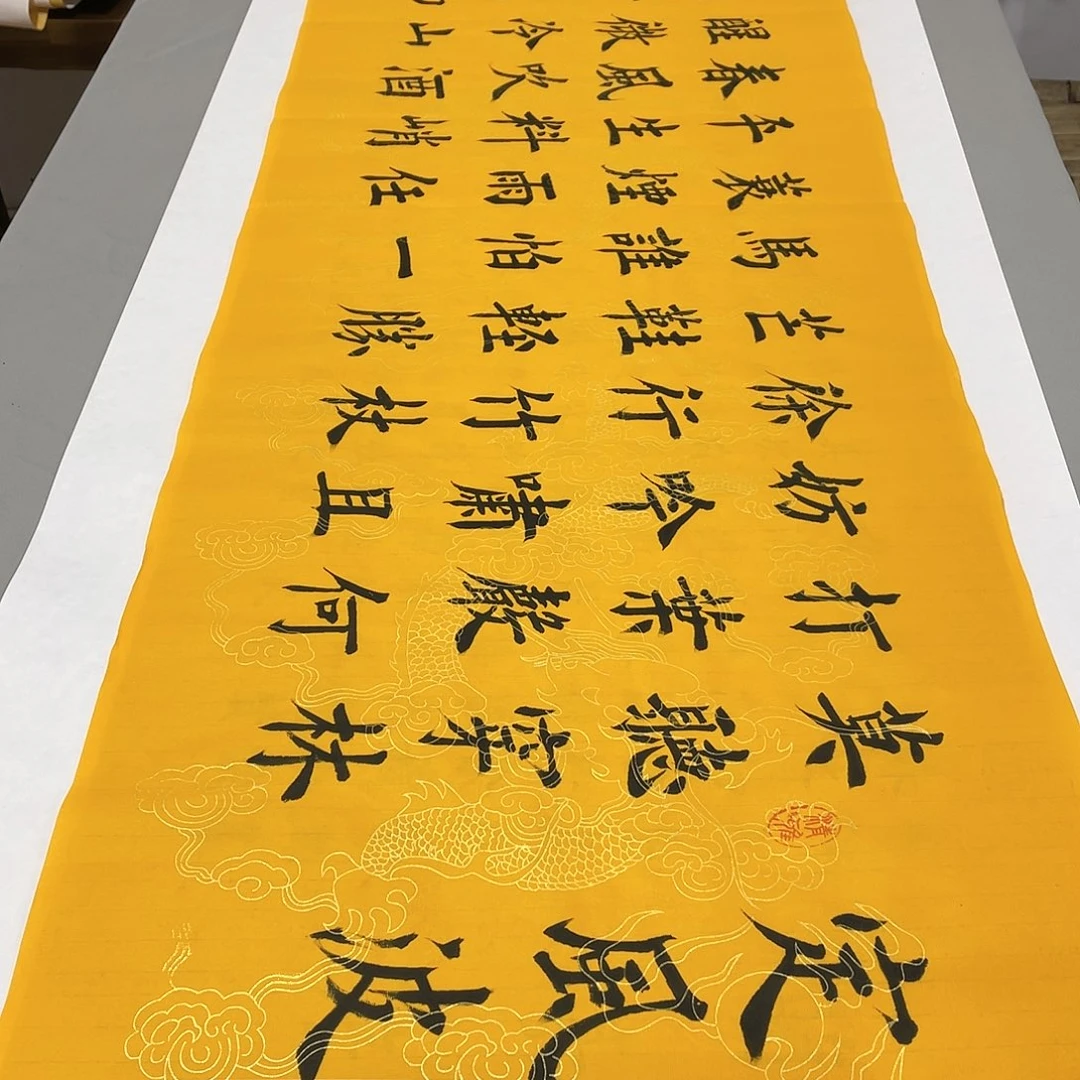 定風波
莫聽穿林
打葉聲何
妨吟嘯且
徐行竹杖
芒鞋輕勝
馬誰怕一
蓑煙雨任
平生料峭
春風吹酒
醒微冷山